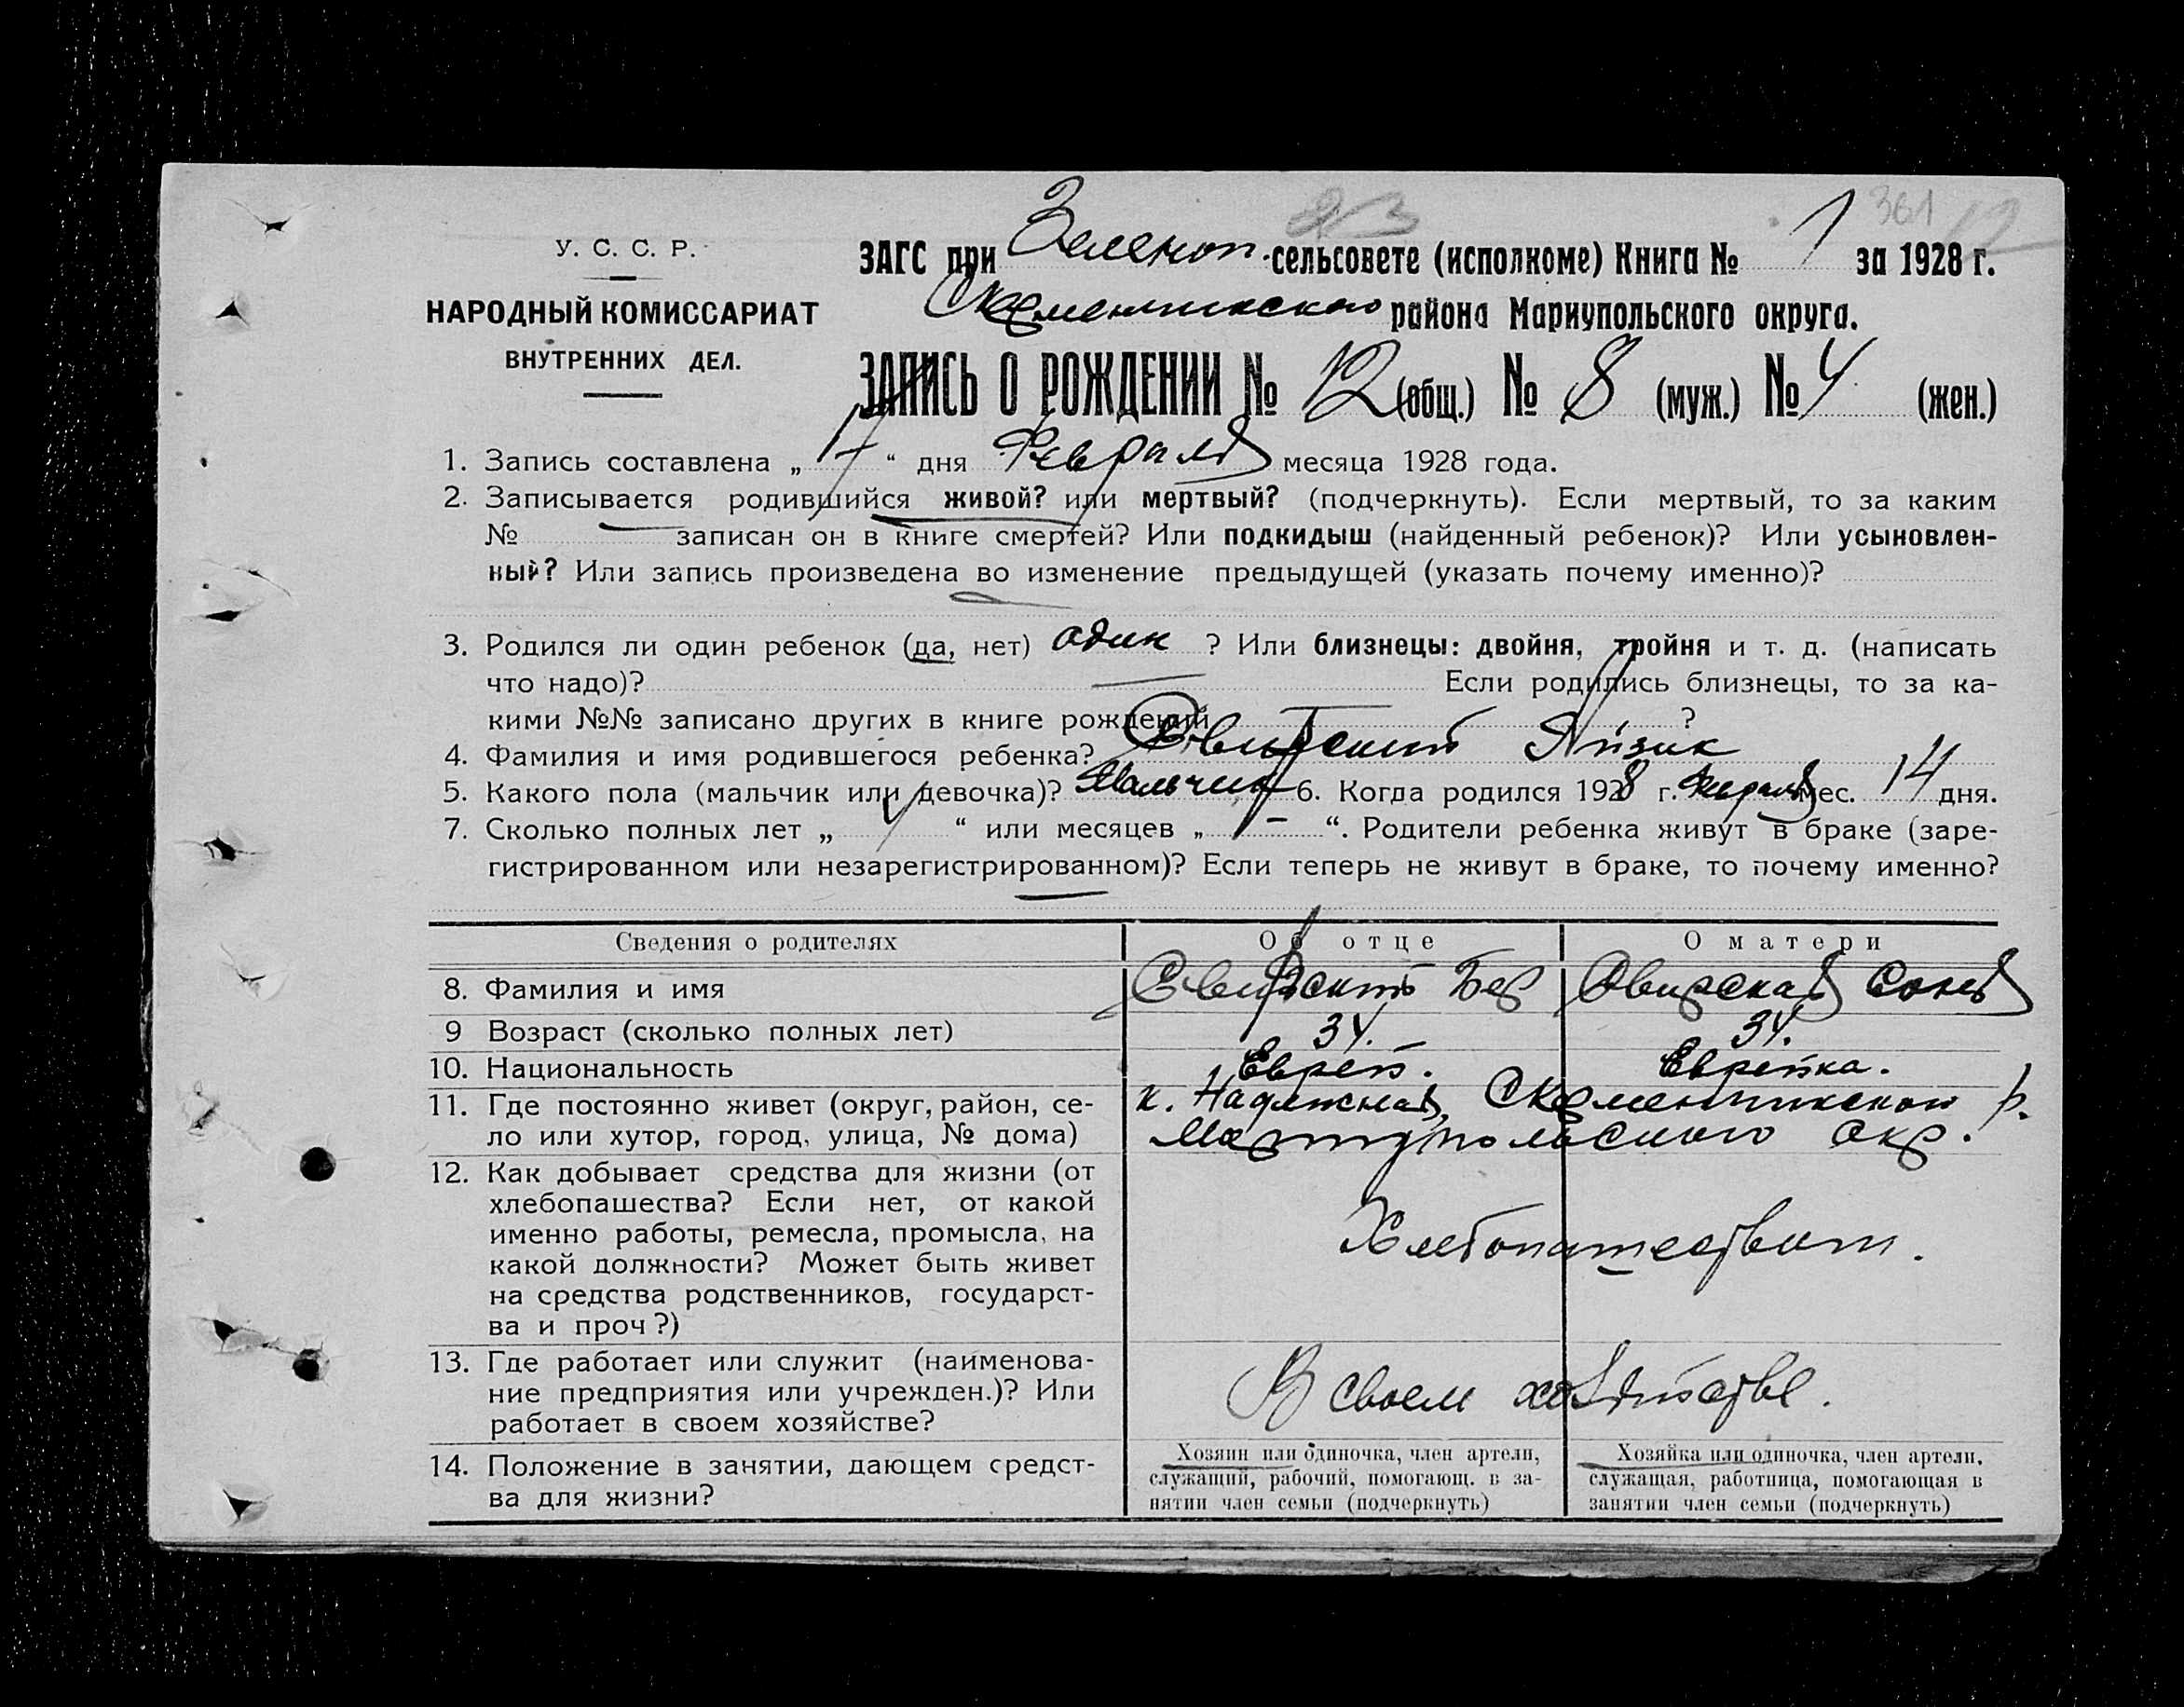 361 12
У. С. С. Р.
НАРОДНЫЙ КОМИССАРИАТ
ВНУТРЕННИХ ДЕЛ.
ЗАГС при Зеленоп. сельсовете (исполкоме) Книга № 1 за 1928 г.
района Мариупольского округа.
ЗАПИСЬ О РОЖДЕНИИ № 12 (общ.) № 8 (муж.) № 4 (жен.)
1. Запись составлена „ 17 “ дня Февраля месяца 1928 года.
2. Записывается родившийся живой? или мертвый? (подчеркнуть). Если мертвый, то за каким
№ записан он в книге смертей? Или подкидыш (найденный ребенок)? Или усыновлен-
ный? Или запись произведена во изменение предыдущей (указать почему именно)?
3. Родился ли один ребенок (да, нет) один ? Или близнецы: двойня, тройня и т. д. (написать
что надо)? — Если родились близнецы, то за ка-
кими №№ записано других в книге рождений ?
4. Фамилия и имя родившегося ребенка? Свирский Яйзик
5. Какого пола (мальчик или девочка)? Мальчик 6. Когда родился 1928 г. Февраля мес. 14 дня.
7. Сколько полных лет „ “ или месяцев „ – “. Родители ребенка живут в браке (заре-
гистрированном или незарегистрированном)? Если теперь не живут в браке, то почему именно?
—
Сведения о родителях Об отце О матери
8. Фамилия и имя Свирский Бер Свирская Соня
9 Возраст (сколько полных лет) 34. 34.
10. Национальность Еврей. Еврейка.
11. Где постоянно живет (округ, район, се-
ло или хутор, город, улица, № дома)
к. Надежная, р.
Мариупольского окр.
12. Как добывает средства для жизни (от
хлебопашества? Если нет, от какой
именно работы, ремесла, промысла, на
какой должности? Может быть живет
на средства родственников, государст-
ва и проч?)
Хлебопашеством.
13. Где работает или служит (наименова-
ние предприятия или учрежден.)? Или
работает в своем хозяйстве?
В своем хозяйстве.
14. Положение в занятии, дающем средст-
ва для жизни?
Хозяин или одиночка, член артели,
служащий, рабочий, помогающ. в за-
нятии член семьи (подчеркнуть)
Хозяйка или одиночка, член артели,
служащая, работница, помогающая в
занятии член семьи (подчеркнуть)